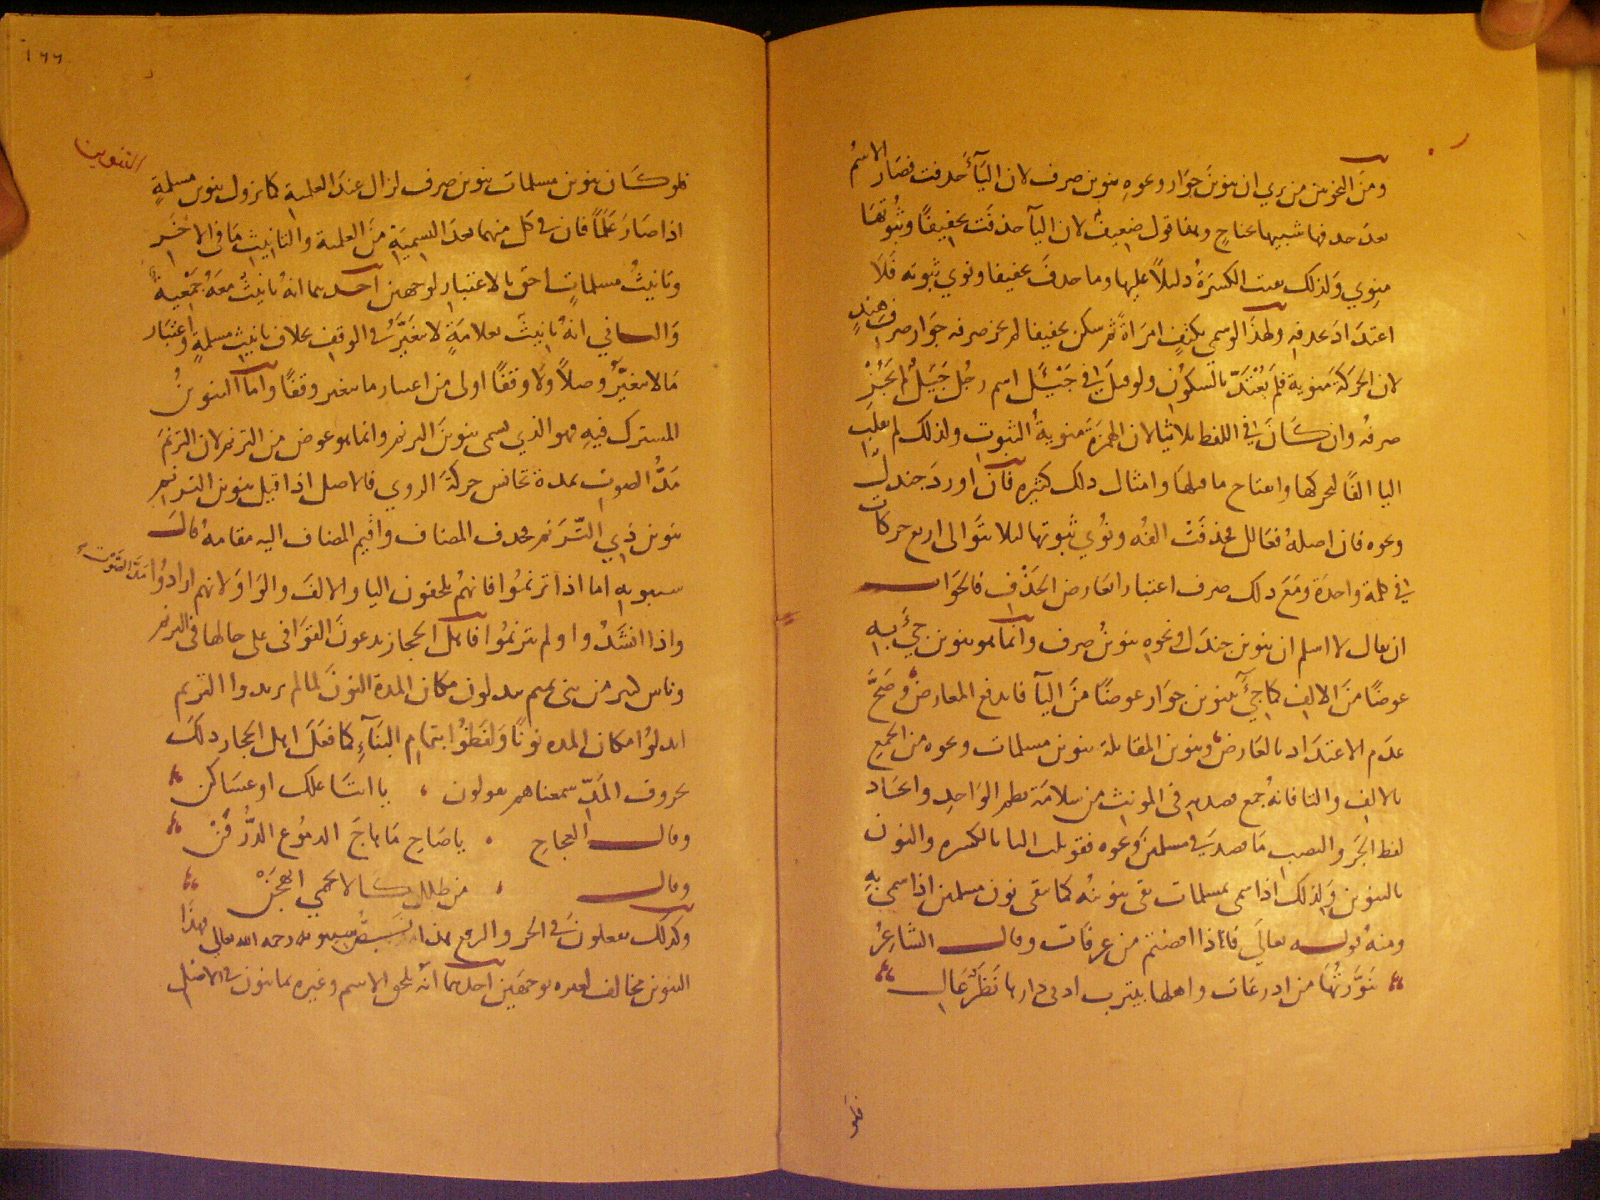 ومن النحويين من يرى ان تنوين جوار ونحوه تنوين صرف لان اليآء حذفت فصار الاسم
بعد حذفها شبيها بجناح وهذا قول ضعيف لان اليآ حذفت تخفيفًا وثبوتها
منوي ولذلك بقيت الكسرة دليلاً عليها وما حذف تخفيفا ونوي ثبوته فلا
اعتداد بحذفه ولهذا لو سمي بكتف امراة ثم سكن تخفيفا لم يجز صرفه جواز صرف هند
لان الحركة منوية فلم يعتد بالسكون ولو قيل في جَيْئَل اسم رجل جَيَل لم يجز
صرفه وان كان في اللفظ ثلاثيا لان الهمزة منوية الثبوت ولذلك لم تقلب
اليا الفًا لتحركها وانفتاح ما قبلها وامثال ذلك كثيره فان اورد جندل
ونحوه فان اصله فعالل فحذفت الفه ونُوي ثبوتها لئلا تتوالى اربع حركات
في كلمة واحدة ومع ذلك صرف اعتبارا لعارض الحذف فالجواب
ان يقال لا اسلم ان تنوين جندل ونحوه تنوين صرف وانما هو تنوين جيء به
عوضًا من الالف كما جيء بتنوين جوار عوضًا من اليآ فاندفع المعارض وصحّ
عدم الاعتداد بالعارض وتنوين المقابلة تنوين مسلمات ونحوه من الجمع
بالالف والتا فانه جمع قصد به في المونث من سلامة نظم الواحد واتحاد
لفظ الجر والنصب ما قصد في مسلمين ونحوه فقوبلت اليا بالكسره والنون
بالتنوين ولذلك اذا سمى بمسلمات بقى تنوينه كما تبقى نون مسلمين اذا سمى به
ومنه قوله تعالى فاذا افضتم من عرفات وقال الشاعر
تنوّرتُها من اذرعات واهلها بيثرب ادنى دارها نظر عال
فلو
١٦٦
التنوين
فلو كان تنوين مسلمات تنوين صرف لزال عند العلمية كما يزول تنوين مسلمةٍ
اذا صار علمًا فان في كل منهما بعد التسمية من العلمية والتانيث ما في الاخر
وتانيث مسلمات احق بالاعتبار لوجهين احدهما انه تانيث معه جمعية
والثاني انه تانيث بعلامةٍ لا تتغيّر في الوقف بخلاف تانيث مسلمةٍ واعتبار
ما لا يتغيّر وصلاً ولا وقفًا اولى من اعتبار ما يتغير وقفًا واما التنوين
المشترك فيه فهو الذي يسمى تنوين الترنم وانما هو عوض من الترنم لان الترنم
مدّ الصوت بمدة تجانس حركة الروي فالاصل اذا قيل تنوين الترنم
تنوين ذي التّرنم فحذف المضاف واقيم المضاف اليه مقامه قال
سيبويه اما اذا ترنموا فانهم يلحقون اليا والالف والواو لانهم ارادوا مدّ الصوت
واذا انشدوا ولم يترنموا فاهل الحجاز يدعون القوافى على حالها في الترنم
وناس كثير من بنى تميم يبدلون مكان المدة النون لما لم يريدوا الترنم
ابدلوا مكان المده نونًا ولفظوا بتمام البنآء كما فعل اهل الحجاز ذلك
بحروف المدّ سمعناهم يقولون يا ابتا علك او عساكن
وقال العجاج يا صاح ما هاج الدموع الذُّرَّفَنْ
وقال من طلل كالاتحمي انهجَنْ
وكذلك يفعلون في الجر والرفع هذا نص سيبويه رحمه الله تعالي وهذا
التنوين مخالف لغيره بوجهين احدهما انه يلحق الاسم وغيره بما نون في الاصل